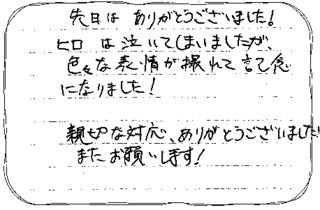 先日は ありがとうございました!
ヒロ は泣いてしまいましたが、
色々な表情が撮れて記念
になりました!
親切な対応、ありがとうございました!!
またお願いします!